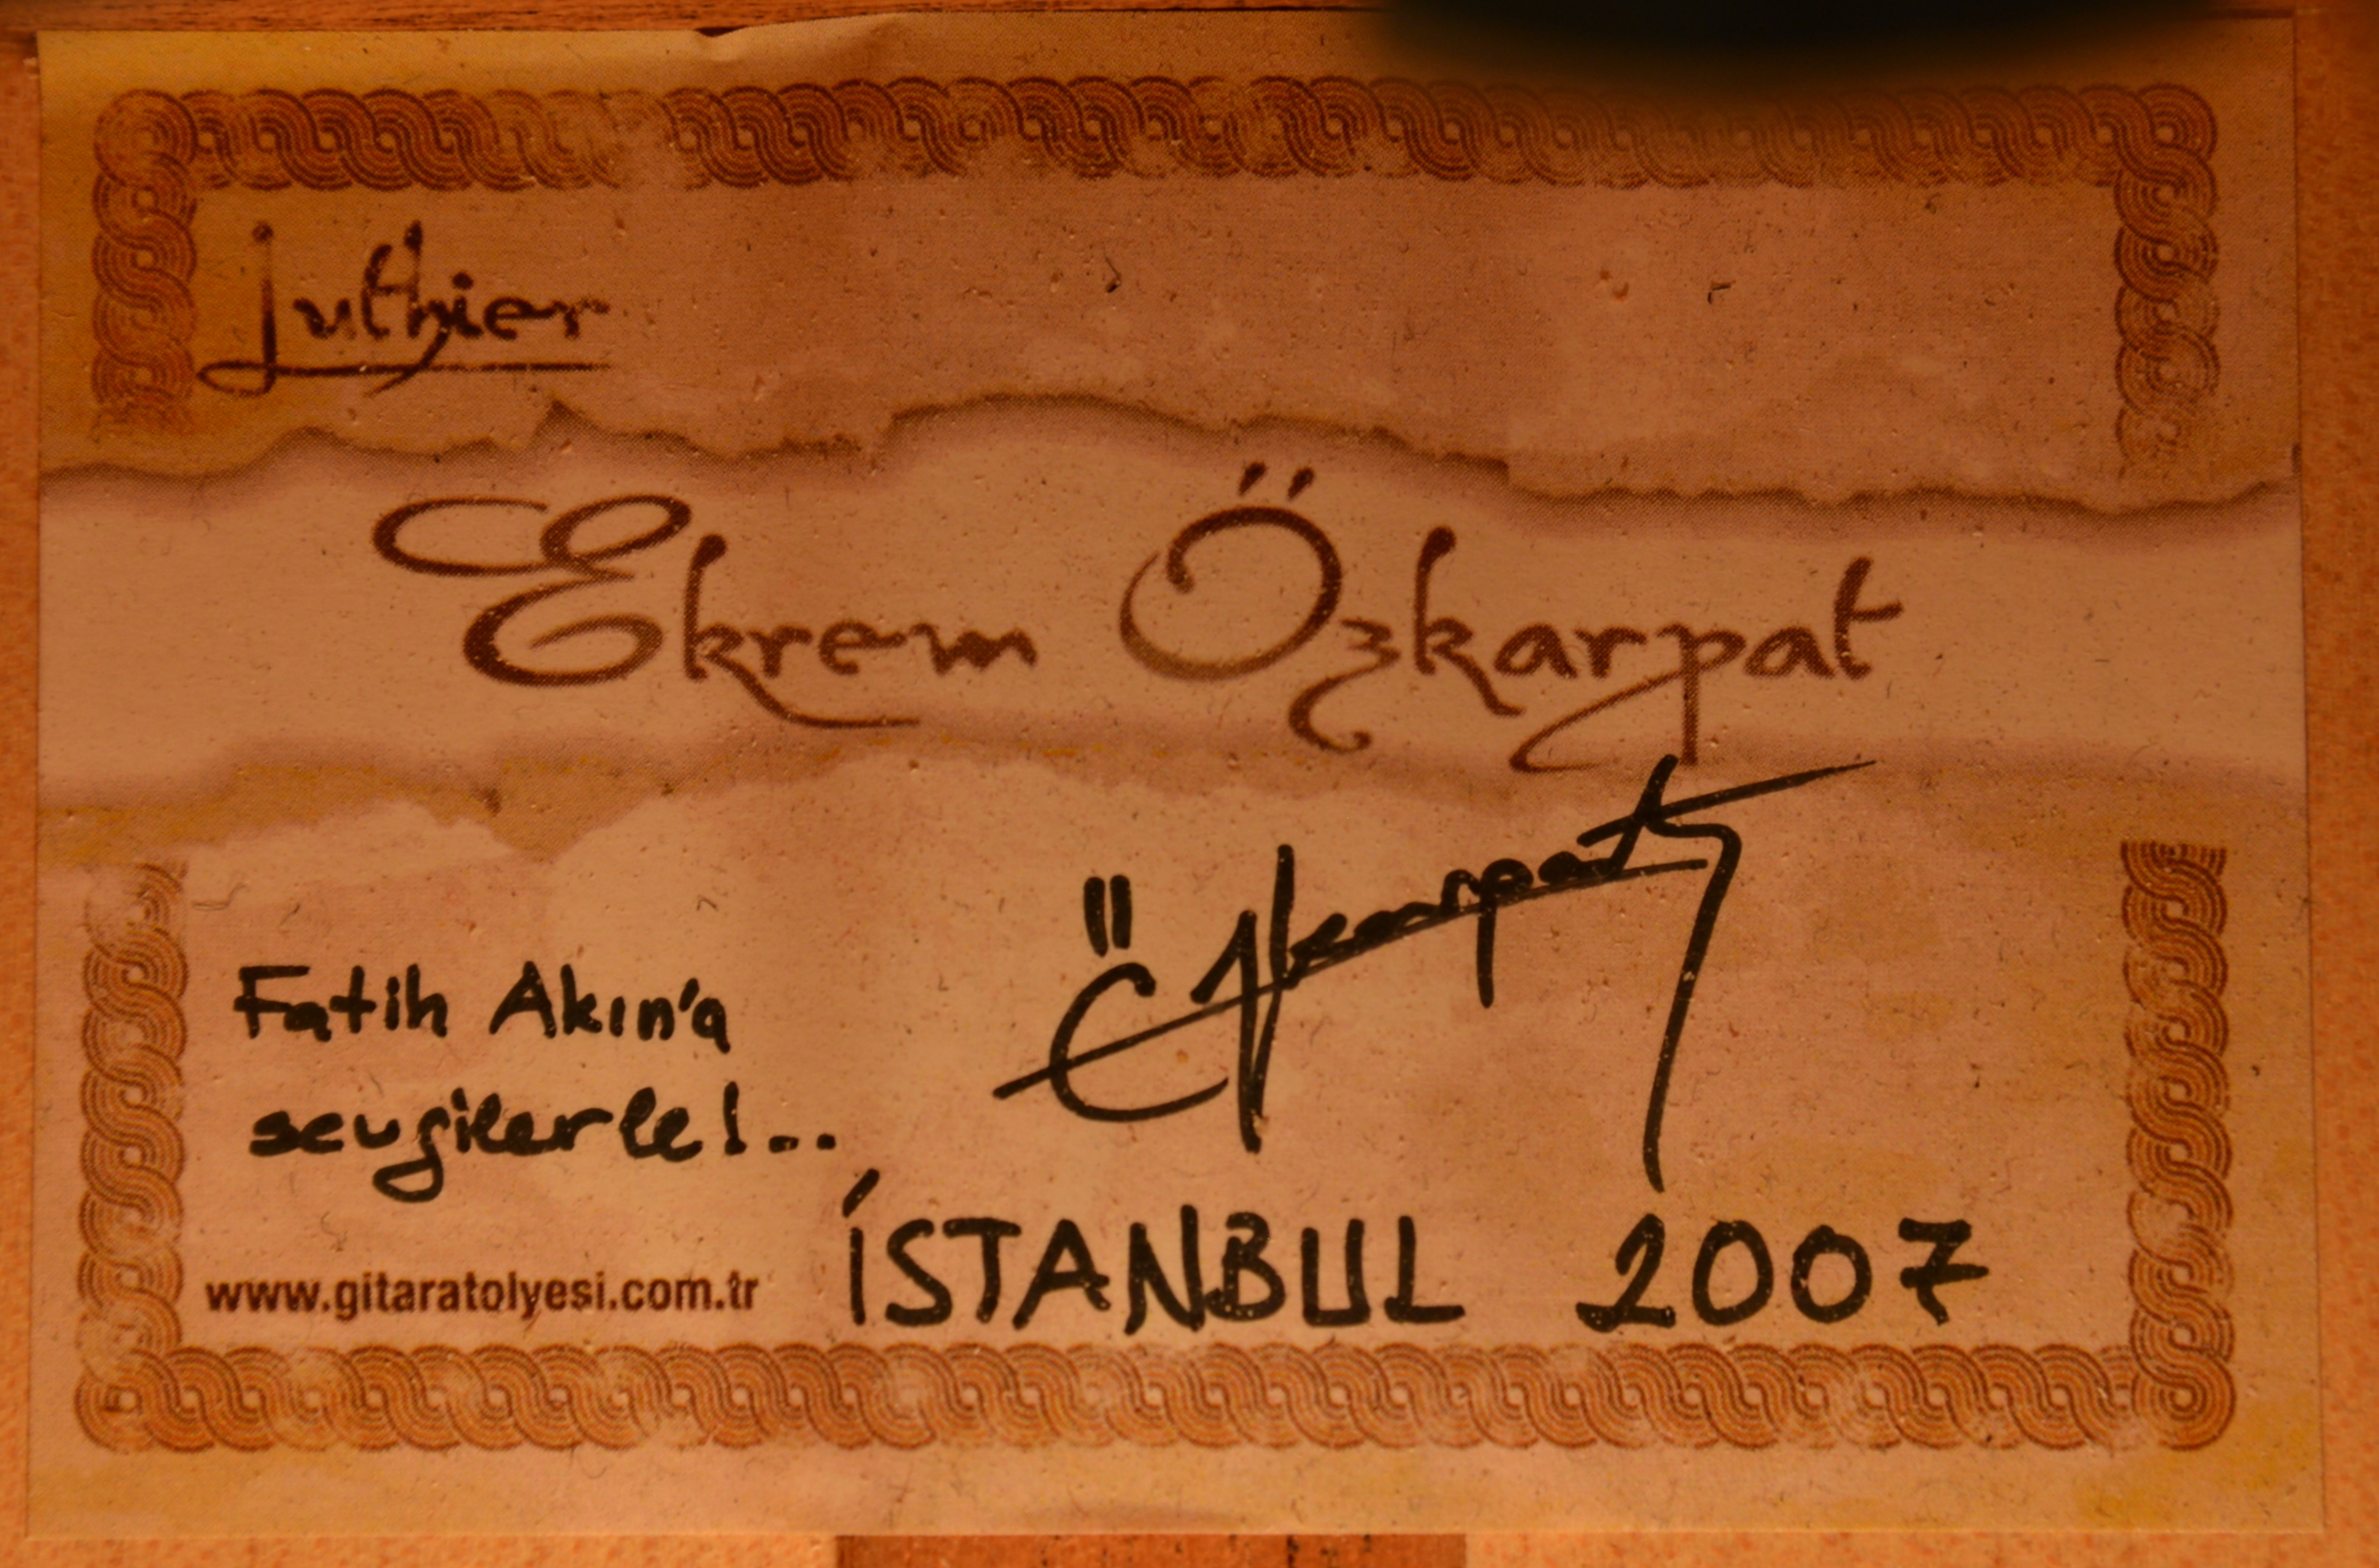 Luthier
Ekrem Özkarpat
Özkarpat
Fatih Akın'a
sevgilerle!..
www.gitaratolyesi.com.tr
İSTANBUL 2007